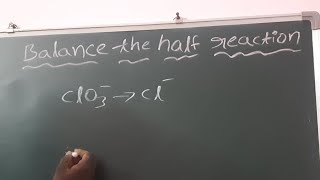 Balance the half reaction
ClO₃⁻ → Cl⁻